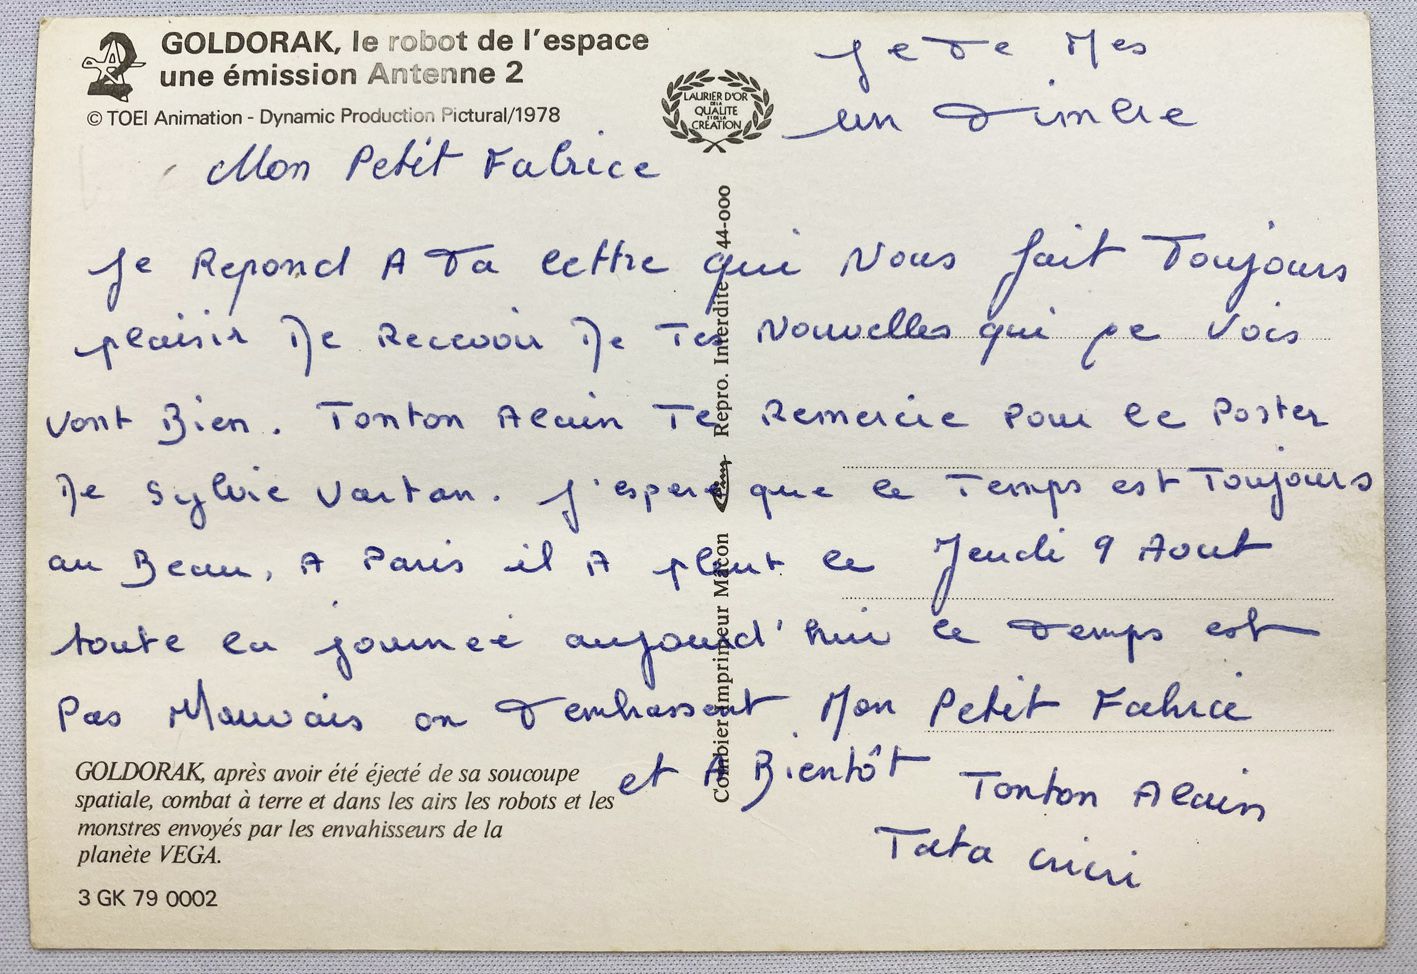 GOLDORAK, le robot de l'espace
une émission Antenne 2
© TOEI Animation - Dynamic Production Pictural/1978
LAURIER D'OR
DE LA
QUALITE
ET DE LA
CREATION
Je Te Mes
un Timbre
Mon Petit Fabrice
Je Repond A Ta lettre qui Nous fait Toujours
plaisir De Recevoir De Tes Nouvelles qui je Vois
vont Bien. Tonton Alain Te Remercie Pour le Poster
De Sylvie Vartan. J'espere que le Temps est Toujours
au Beau, A Paris il A pleut le Jeudi 9 Aout
toute la journeé aujourd'hui le Temps est
Pas Mauvais on T'embrassent Mon Petit Fabrice
et A Bientôt
Tonton Alain
Tata cricri
GOLDORAK, après avoir été éjecté de sa soucoupe
spatiale, combat à terre et dans les airs les robots et les
monstres envoyés par les envahisseurs de la
planète VEGA.
3 GK 79 0002
Combier Imprimeur Mâcon Repro. Interdite 44-000